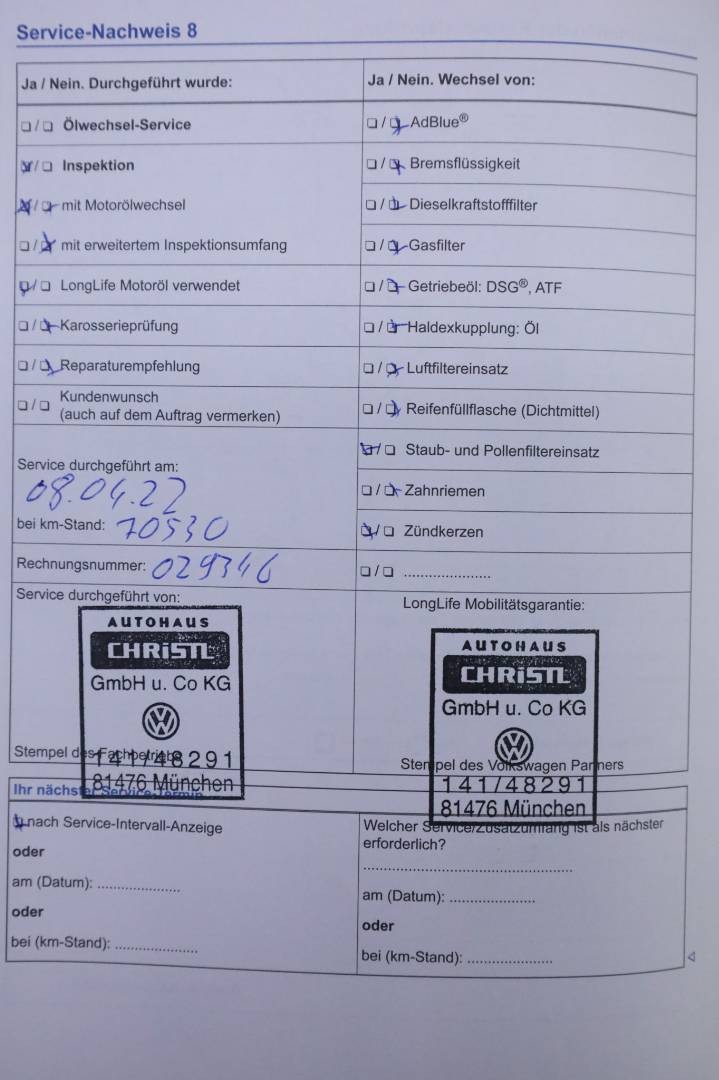 Service-Nachweis 8
Ja / Nein. Durchgeführt wurde:
❑ / ❑ Ölwechsel-Service
❑ / ❑ Inspektion
❑ / ❑ mit Motorölwechsel
❑ / ❑ mit erweitertem Inspektionsumfang
❑ / ❑ LongLife Motoröl verwendet
❑ / ❑ Karosserieprüfung
❑ / ❑ Reparaturempfehlung
❑ / ❑ Kundenwunsch
(auch auf dem Auftrag vermerken)
Service durchgeführt am:
08.04.22
bei km-Stand: 70530
Rechnungsnummer: 029346
Service durchgeführt von:
AUTOHAUS
CHRiSTL
GmbH u. Co KG
VW
Stempel des Fachbetriebs
141/48291
81476 München
Ja / Nein. Wechsel von:
❑ / ❑ AdBlue®
❑ / ❑ Bremsflüssigkeit
❑ / ❑ Dieselkraftstofffilter
❑ / ❑ Gasfilter
❑ / ❑ Getriebeöl: DSG®, ATF
❑ / ❑ Haldexkupplung: Öl
❑ / ❑ Luftfiltereinsatz
❑ / ❑ Reifenfüllflasche (Dichtmittel)
❑ / ❑ Staub- und Pollenfiltereinsatz
❑ / ❑ Zahnriemen
❑ / ❑ Zündkerzen
❑ / ❑ ......................
LongLife Mobilitätsgarantie:
AUTOHAUS
CHRiSTL
GmbH u. Co KG
VW
Stempel des Volkswagen Partners
141/48291
81476 München
Ihr nächster Service-Termin
❑ nach Service-Intervall-Anzeige
oder
am (Datum): .....................
oder
bei (km-Stand): .....................
Welcher Service/Zusatzumfang ist als nächster
erforderlich?
.....................................................
am (Datum): .....................
oder
bei (km-Stand): .....................